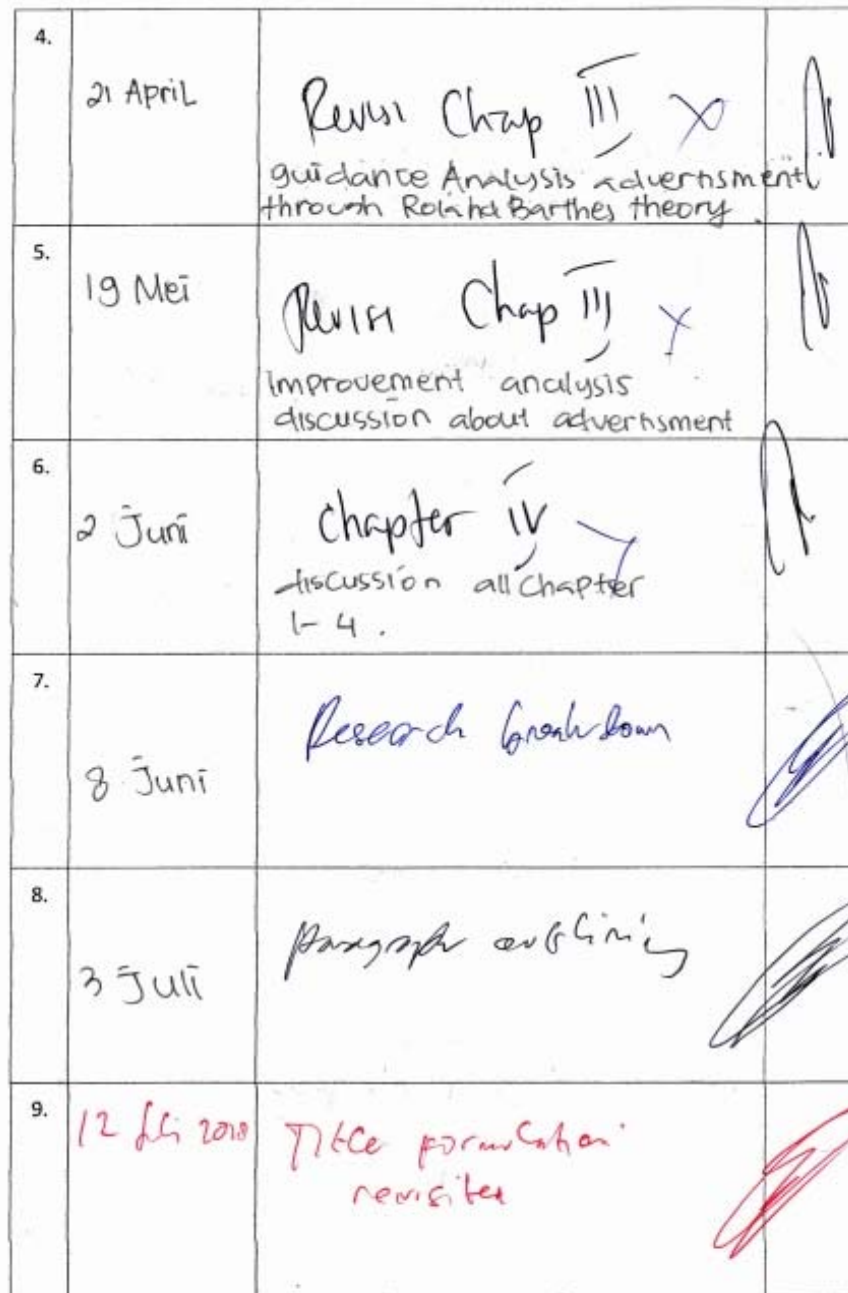 4.
21 April
Revisi Chap III
guidance Analysis advertisment
through Roland Barthes theory.
5.
19 Mei
Revisi Chap III
improvement analysis
discussion about advertisment
6.
2 Juni
Chapter IV
discussion all chapter
1-4.
7.
8 Juni
Research breakdown
8.
3 Juli
paragraph outlining
9.
12 Juli 2018
Title formulation
revisited